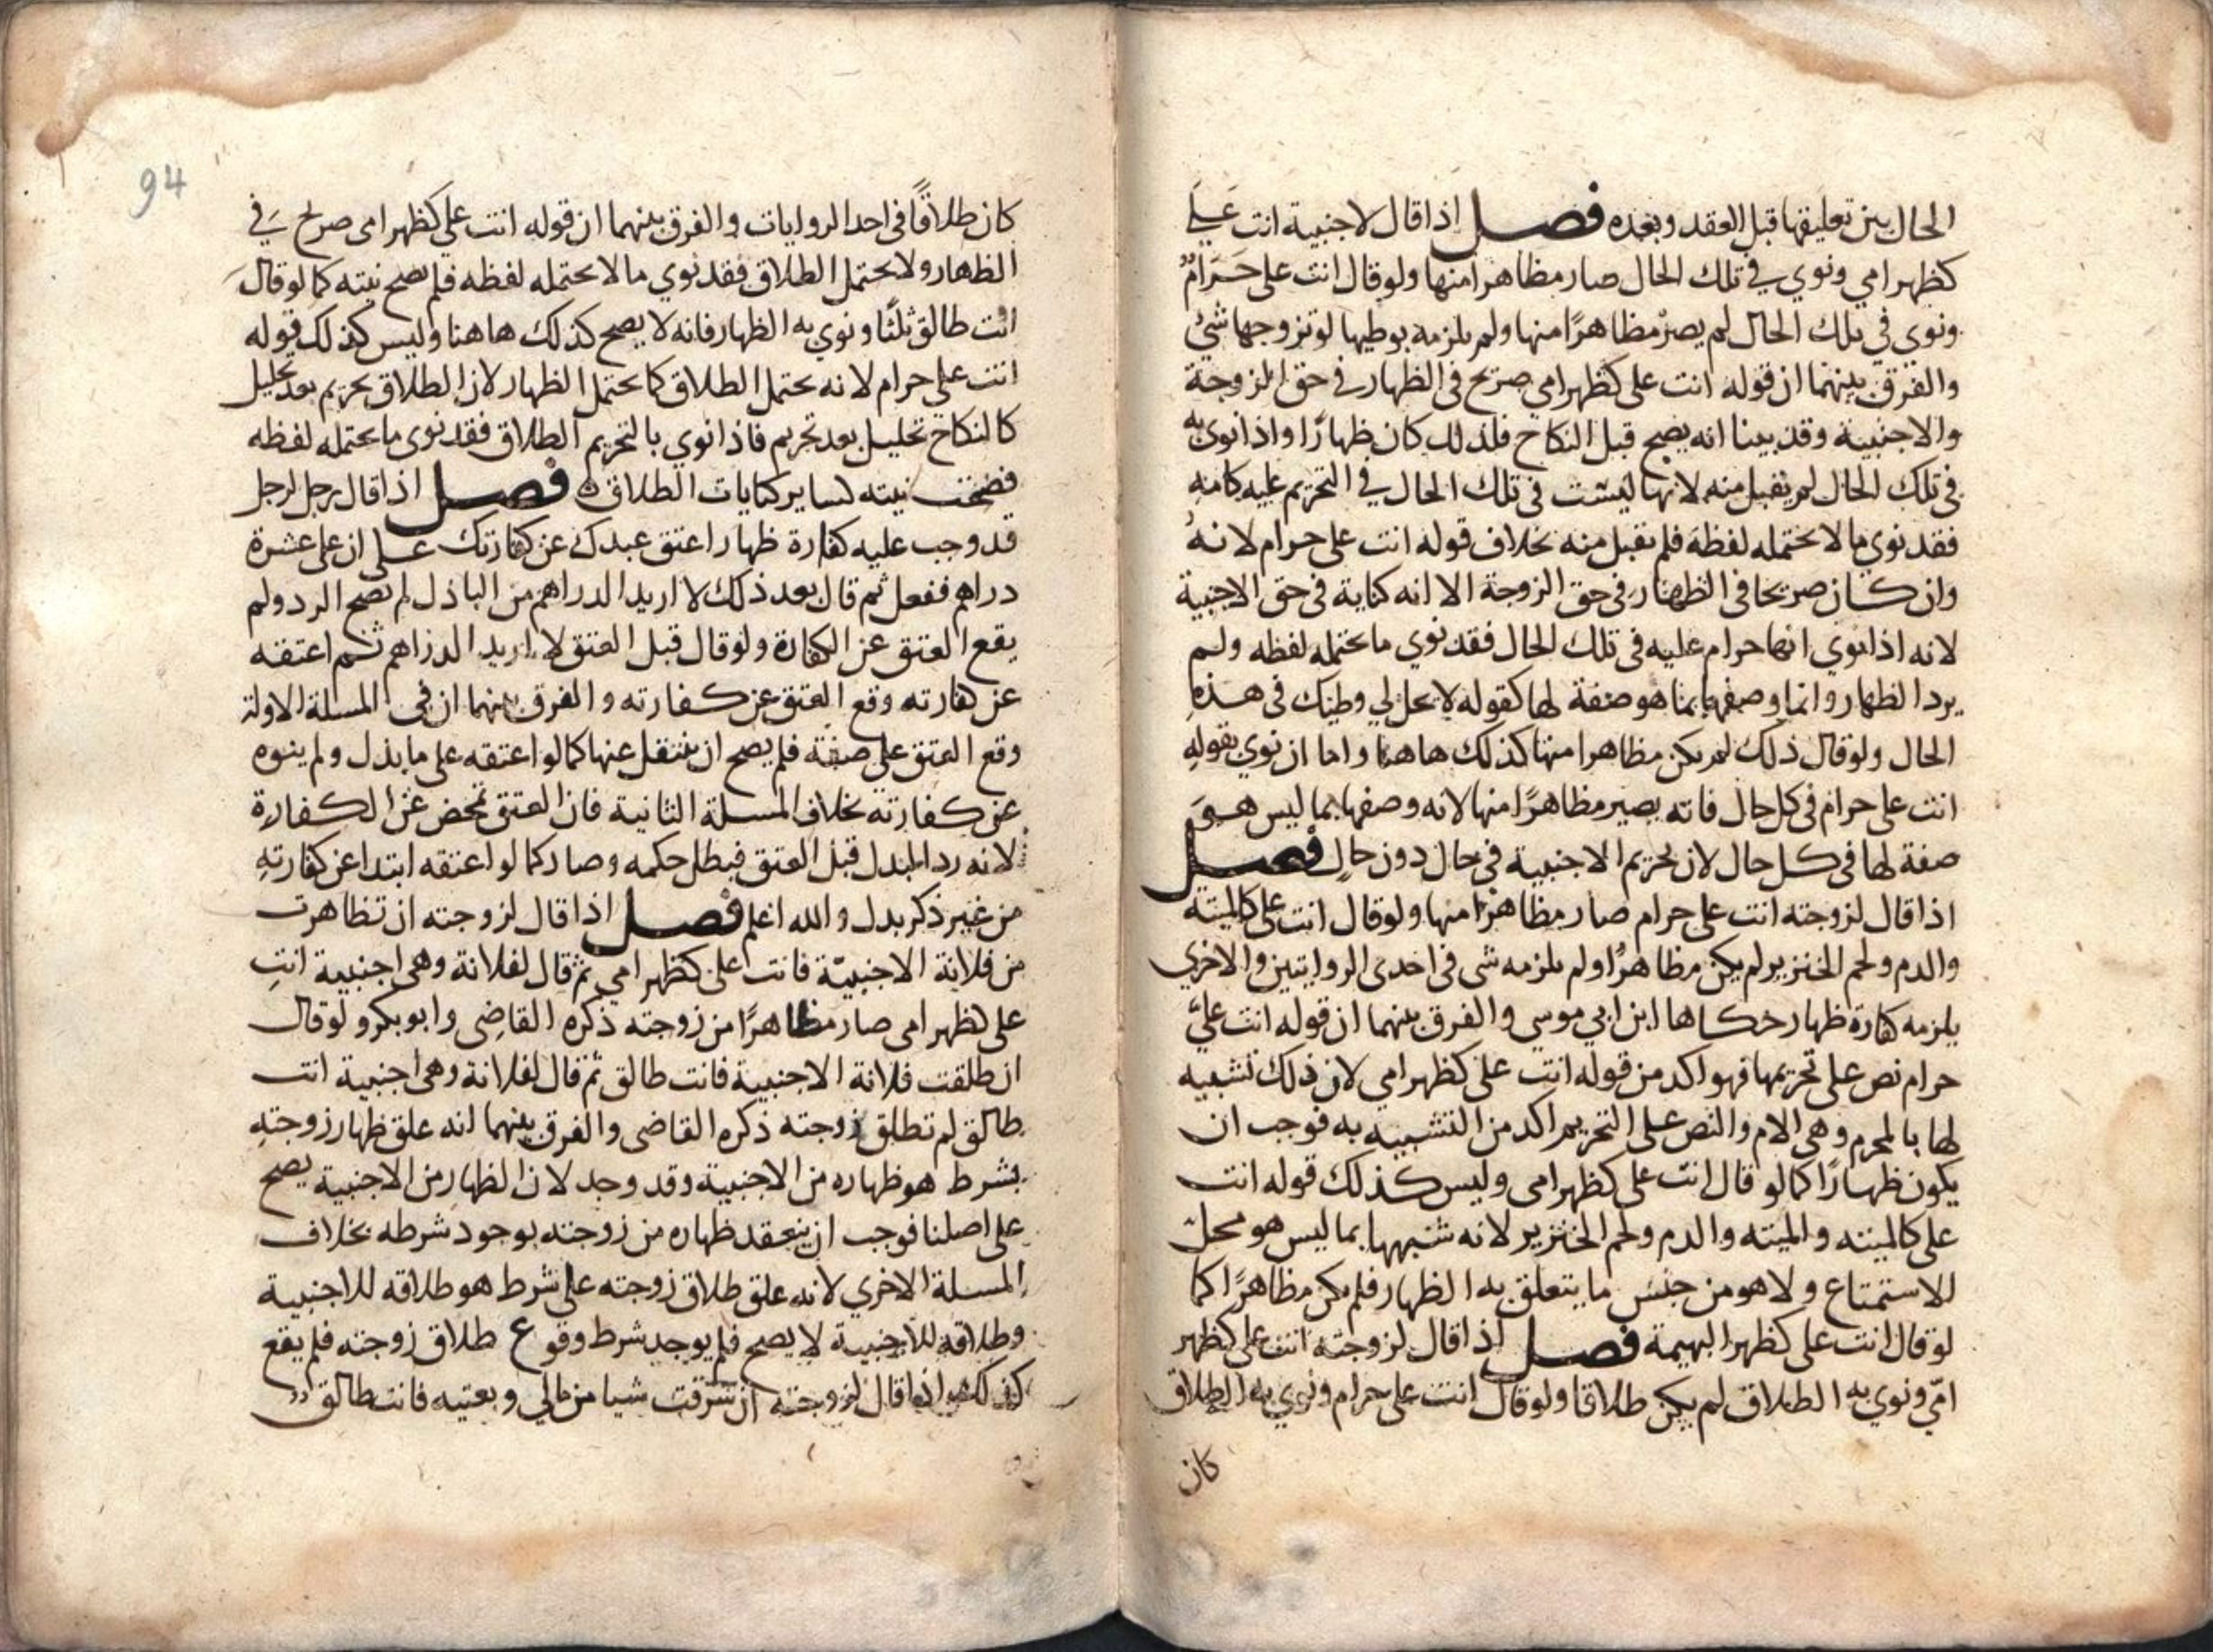 الحال بين تعليقها قبل العقد وبعده فصل اذا قال لاجنبية انت علي
كظهر امي ونوي في تلك الحال صار مظاهرا منها ولو قال انت على حَرَامٌ
ونوى في تلك الحال لم يصرْ مظاهرًا منها ولم يلزمه بوطيها لو تزوجها شيْ
والفرق بينهما ان قوله انت على كظهر امى صريح فى الظهار في حق الزوجة
والاجنبية وقد بينا انه يصح قبل النكاح فلذلك كان ظهارًا واذا نوى به
فى تلك الحال لم يقبل منه لانها ليست فى تلك الحال في التحريم عليه كامه
فقد نوي ما لا يحتمله لفظه فلم يقبل منه بخلاف قوله انت على حرام لانهُ
وان كان صريحا فى الظهار فى حق الزوجة الا انه كناية فى حق الاجنبية
لانه اذا نوي انها حرام عليه فى تلك الحال فقد نوي ما يحتمله لفظه ولم
يرد الظهار وانما وصفها بما هو صفة لها كقوله لا يحل لي وطيك فى هذهِ
الحال ولو قال ذلك لم يكن مظاهرا منها كذلك هاهنا واما ان نوي بقوله
انت على حرام فى كل حال فانه يصير مظاهرًا منها لانه وصفها بما ليس هوَ
صفة لها فى كل حال لان تحريم الاجنبية في حال دون حالٍ فصل
اذا قال لزوجته انت على حرام صار مظاهرًا منها ولو قال انت على كالميتة
والدم ولحم الخنزير لم يكن مظاهرًا ولم يلزمه شى فى احدى الروايتين والاخري
يلزمه كفارة ظهار حكاها ابن ابي موسي والفرق بينهما ان قوله انت عليّ
حرام نص على تحريمها فهو اكد من قوله انت على كظهر امي لان ذلك تشبيه
لها بالمحرم وهى الام والنص على التحريم اكد من التشبيه به فوجب ان
يكون ظهارًا كما لو قال انت على كظهر امى وليس كذلك قوله انت
على كالميته والميته والدم ولحم الخنزير لانه شبهها بما ليس هو محل
للاستمتاع ولا هو من جنس ما يتعلق به الظهار فلم يكن مظاهرًا كما
لو قال انت على كظهر البهيمة فصل اذا قال لزوجته انت على كظهر
امّي ونوي به الطلاق لم يكن طلاقا ولو قال انت على حرام ونوي به الطلاق
كان
94
كان طلاقًا فى احد الروايات والفرق بينهما ان قوله انت علي كظهر امى صريح في
الظهار ولا يحتمل الطلاق فقد نوي ما لا يحتمله لفظه فلم يصح نيته كما لو قالَ
انت طالق ثلثًا ونوي به الظهار فانه لا يصح كذلك هاهنا وليس كذلك قوله
انت على حرام لانه يحتمل الطلاق كما يحتمل الظهار لان الطلاق تحريم بعد تحليل
كالنكاح تحليل بعد تحريم فاذا نوي بالتحريم الطلاق فقد نوى ما يحتمله لفظه
فصحت نيته كساير كنايات الطلاق فصل اذا قال رجل لرجل
قد وجب عليه كفارة ظهار اعتق عبدك عن كفارتك على ان على عشرة
دراهم ففعل ثم قال بعد ذلك لا اريد الدراهم من الباذل لم يصح الرد ولم
يقع العتق عن الكفارة ولو قال قبل العتق لا اريد الدراهم ثم اعتقه
عن كفارته وقع العتق عن كفارته والفرق بينهما ان فى المسلة الاولة
وقع العتق على صفة فلم يصح ان ينتقل عنها كما لو اعتقه على ما بذل ولم ينوه
عن كفارته بخلاف المسلة الثانية فان العتق تمحض عن الكفارة
لانه رد البدل قبل العتق فبطل حكمه وصار كما لو اعتقه ابتدا عن كفارتهِ
من غير ذكر بدل والله اعلم فصل اذا قال لزوجته ان تظاهرت
من فلانة الاجنبيّة فانت على كظهر امي ثم قال لفلانة وهى اجنبية انتِ
على كظهر امى صار مظاهرًا من زوجته ذكره القاضى وابو بكر ولو قال
ان طلقت فلانة الاجنبية فانت طالق ثم قال لفلانة وهى اجنبية انت
طالق لم تطلق زوجته ذكره القاضى والفرق بينهما انه علق ظهار زوجتهِ
بشرط هو ظهاره من الاجنبية وقد وجد لان الظهار من الاجنبية يصح
على اصلنا فوجب ان ينعقد ظهاره من زوجته بوجود شرطه بخلاف
المسلة الاخري لانه علق طلاق زوجته على شرط هو طلاقه للاجنبية
وطلاقه للاجنبية لا يصح فلم يوجد شرط وقوع طلاق زوجته فلم يقع
اذا قال لزوجته ان سرقت شيا من مالي وبعتيه فانت طالق